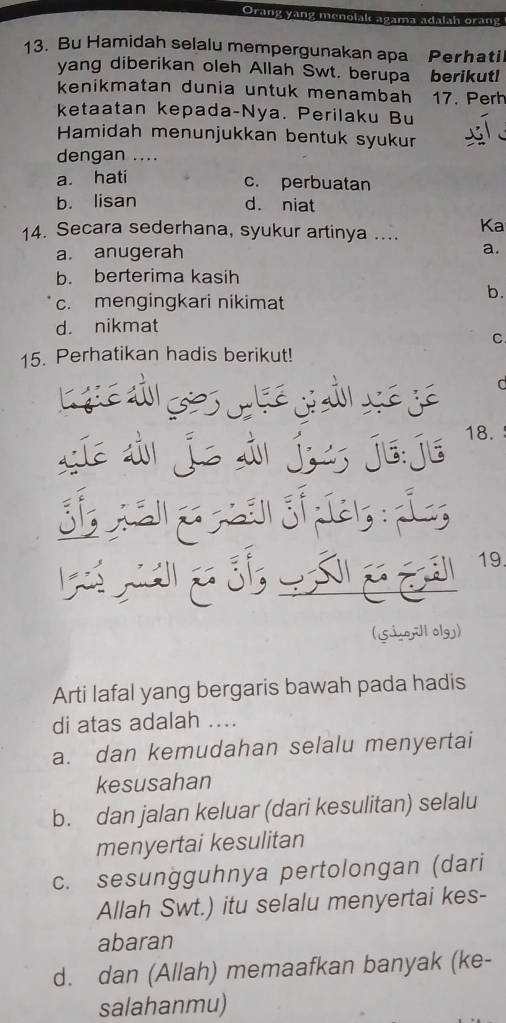 Orang yang menolak agama adalah orang
13. Bu Hamidah selalu mempergunakan apa
yang diberikan oleh Allah Swt. berupa
kenikmatan dunia untuk menambah
ketaatan kepada-Nya. Perilaku Bu
Hamidah menunjukkan bentuk syukur
dengan ....
a. hati
c. perbuatan
b. lisan
d. niat
14. Secara sederhana, syukur artinya ....
a. anugerah
b. berterima kasih
c. mengingkari nikimat
d. nikmat
15. Perhatikan hadis berikut!
عَنْ عَبْدِ اللهِ بْنِ عَبَّاسٍ رَضِيَ اللهُ عَنْهُمَا
قَالَ: قَالَ رَسُوْلُ اللهِ صَلَّى اللهُ عَلَيْهِ
وَسَلَّمَ : وَاعْلَمْ أَنَّ النَّصْرَ مَعَ الصَّبْرِ وَأَنَّ
الْفَرَجَ مَعَ الْكَرْبِ وَأَنَّ مَعَ الْعُسْرِ يُسْرًا
(رواه الترميذي)
Arti lafal yang bergaris bawah pada hadis
di atas adalah ....
a. dan kemudahan selalu menyertai
kesusahan
b. dan jalan keluar (dari kesulitan) selalu
menyertai kesulitan
c. sesungguhnya pertolongan (dari
Allah Swt.) itu selalu menyertai kes-
abaran
d. dan (Allah) memaafkan banyak (ke-
salahanmu)
berikut!
17.
Ka
a.
b.
c.
18.
19.